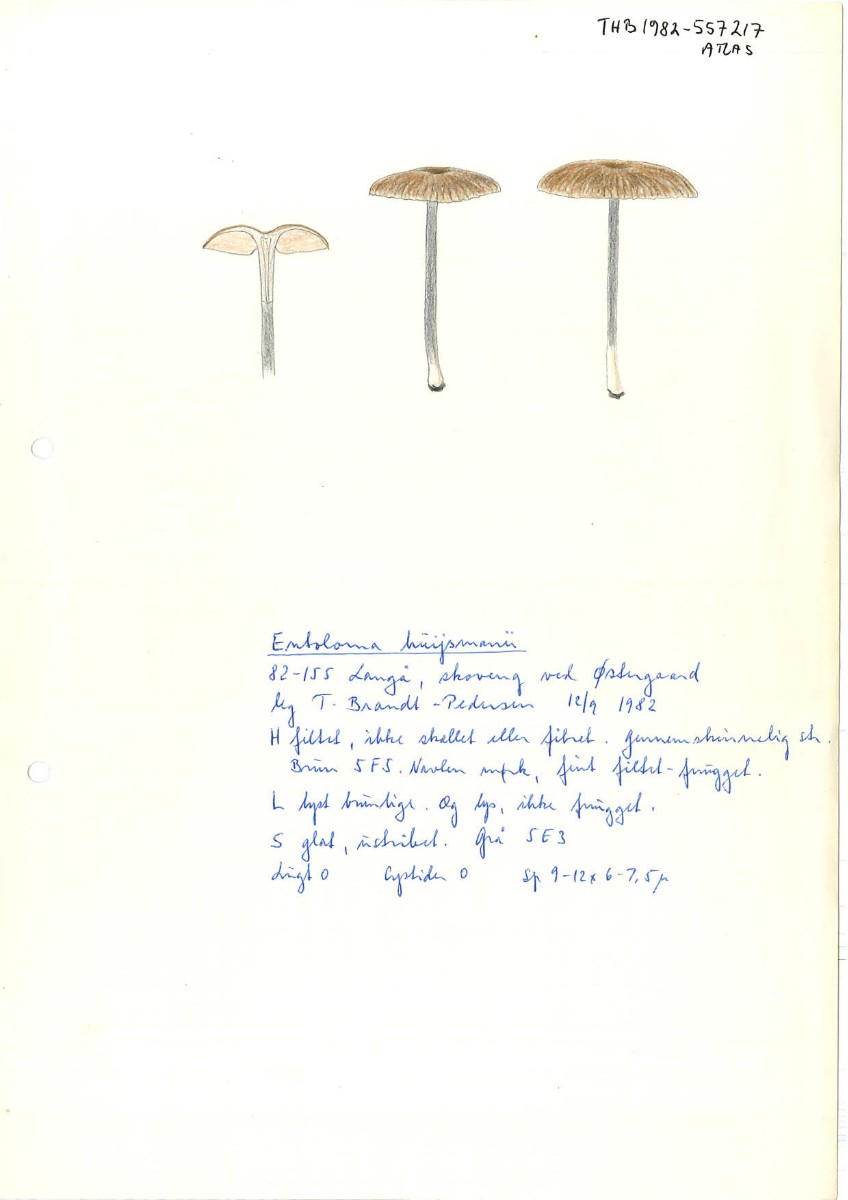 THB1982-557217
ATLAS
Entoloma huijsmanii
82-155 Langå, skoveng ved Østergaard
leg T. Brandt-Pedersen 12/9 1982
H filtet, ikke skællet eller fibret. Gennemskinnelig str.
Brun 5F5. Navlen mørk, fint filtet-fnugget.
L lyst brunlige. Æg lys, ikke fnugget.
S glat, ustribet. Grå 5E3
Lugt 0 Cystider 0 Sp 9-12 x 6-7,5 µ